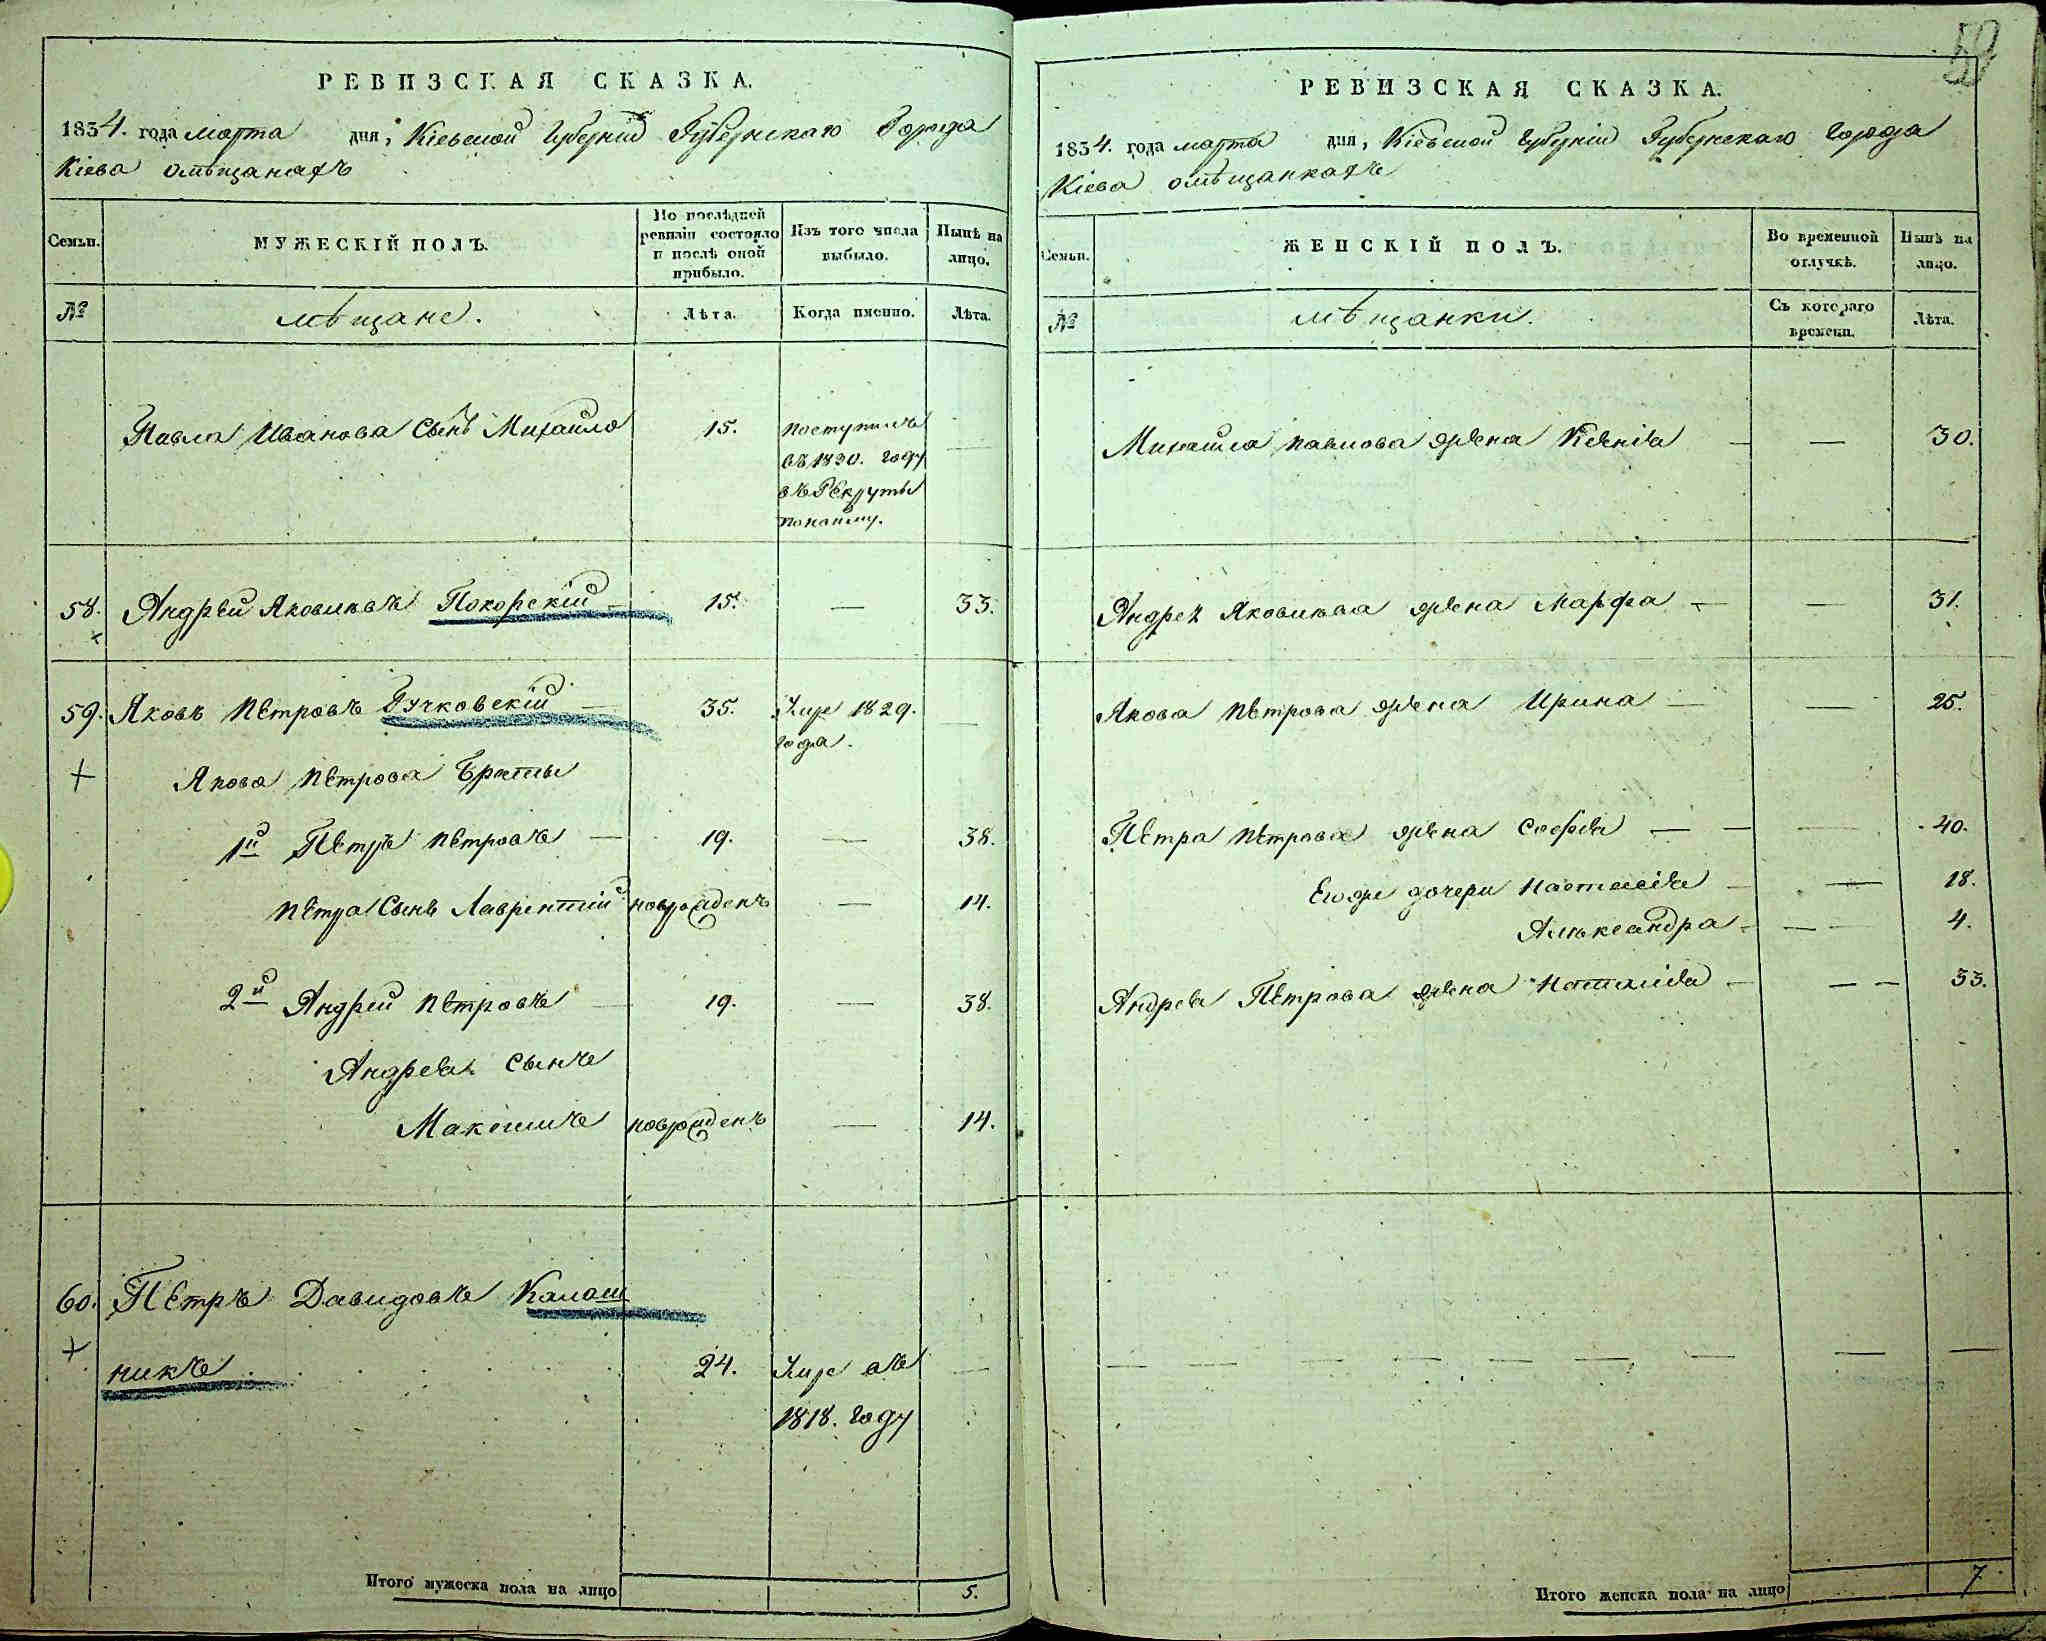 59
РЕВИЗСКАЯ СКАЗКА.
1834. года марта дня, Кіевской Губерніи Губернскаго Города
Кіева омѣщанахъ
Семьи.
МУЖЕСКІЙ ПОЛЪ.
По послѣдней ревизіи состояло и послѣ оной прибыло.
Изъ того числа выбыло.
Нынѣ на лицо.
№
мѣщане.
Лѣта.
Когда именно.
Лѣта.
Павла Иванова Сынъ Михайло 15. поступилъ
въ 1830. году
въ Рекруты
понайму.
58. Андрѣй Яковлевъ Покорскій 15. — 33.
59. Яковъ Петровъ Гучковскій — 35. Умре 1829. —
года.
Якова Петрова Браты
1й Петръ Петровъ — 19. — 38.
Петра Сынъ Лаврентий новрожденъ — 14.
2й Андрей Петровъ — 19. — 38.
Андрея Сынъ
Максимъ новрожденъ — 14.
60. Петръ Давидовъ Калаш
никъ. 24. Умре въ —
1818. году
Итого мужеска пола на лицо 5.
РЕВИЗСКАЯ СКАЗКА.
1834. года марта дня, Кіевской Губерніи Губернскаго Города
Кіева омѣщанкахъ
Семьи.
ЖЕНСКІЙ ПОЛЪ.
Во временной отлучкѣ.
Нынѣ на лицо.
№
мѣщанки.
Съ котораго времени.
Лѣта.
Михайла Павлова жена — — 30.
Андрея Яковлева жена Марфа — — 31.
Якова Петрова жена Ирина — — 25.
Петра Петрова жена Софія — — 40.
Егоже дочери Настасія — — 18.
Александра — — 4.
Андрея Петрова жена Наталія — — 33.
— — — — — — — — — —
Итого женска пола на лицо 7